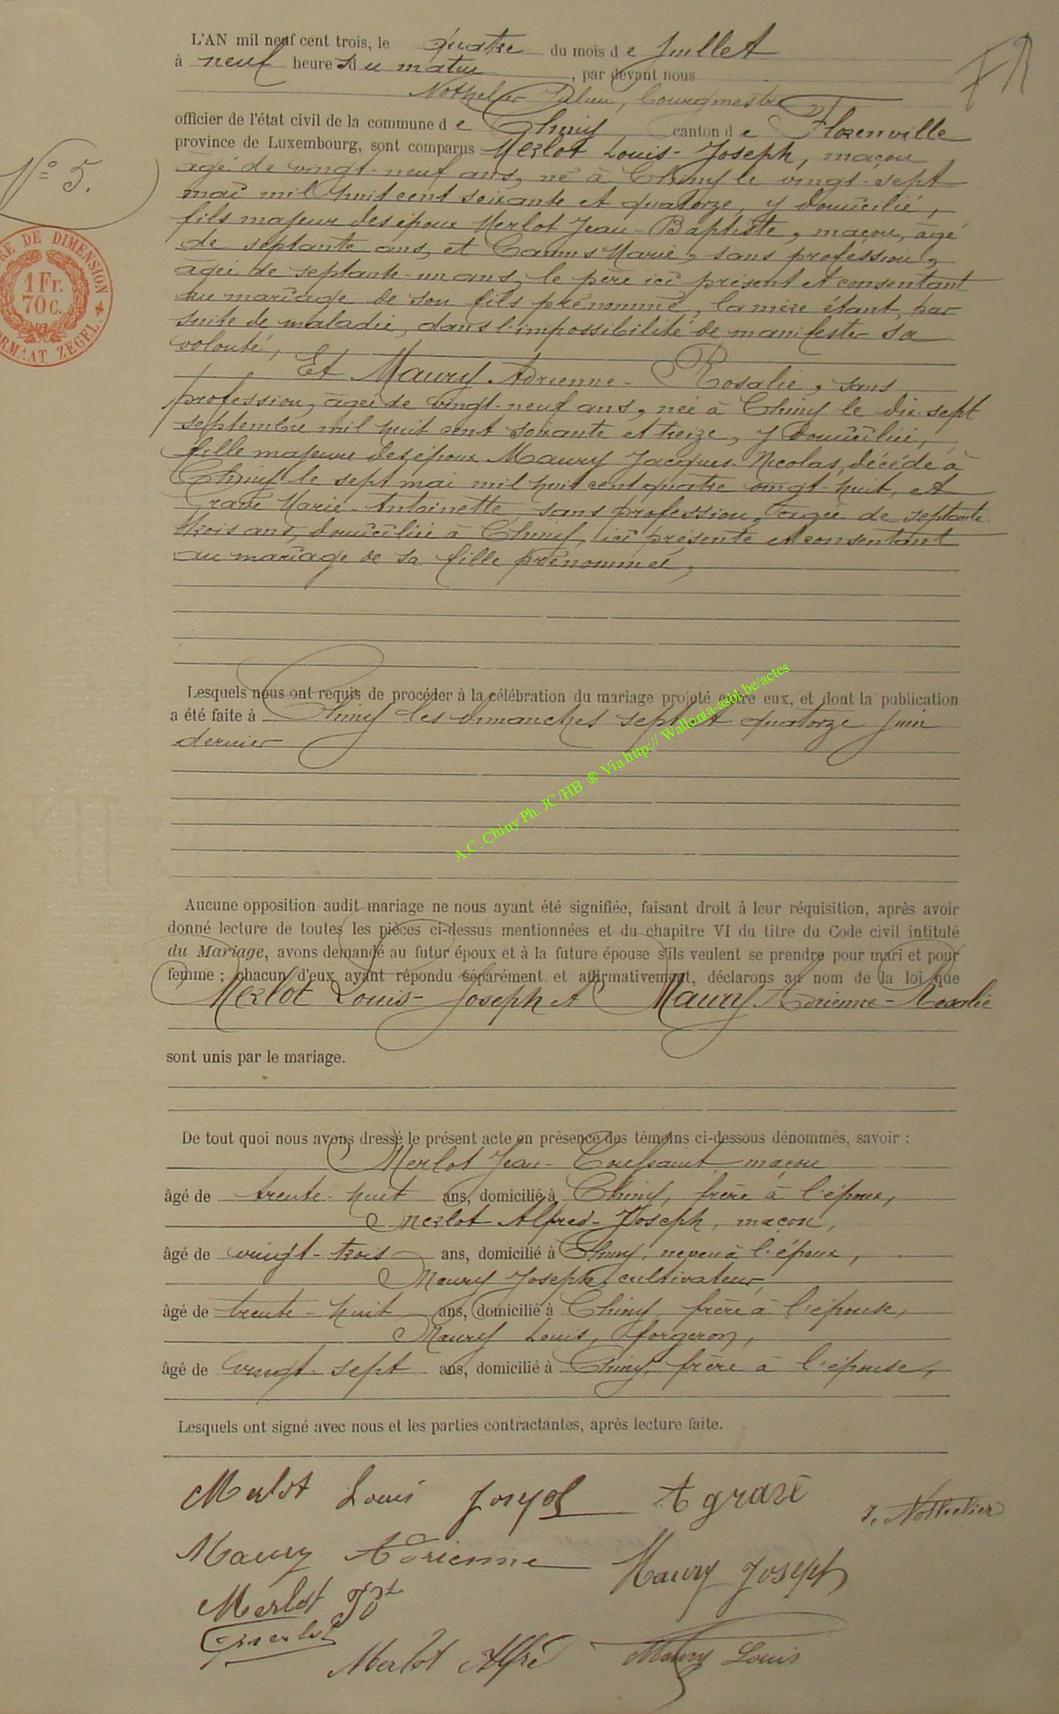 L'AN mil neuf cent trois, le quatre du mois de Juillet
à neuf heures du matin, par devant nous
Nothelier Julien, bourgmestre
officier de l'état civil de la commune de Chiny, canton de Florenville
province de Luxembourg, sont comparus Merlot Louis-Joseph, maçon
âgé de vingt-neuf ans, né à Chiny le vingt-sept
N° 5.
mai mil huit cent soixante et quatorze, y domicilié,
fils majeur des époux Merlot Jean-Baptiste, maçon, âgé
de septante ans, et Marie, sans profession,
âgée de septante-un ans, le père ici présent et consentant
au mariage de son fils prénommé, la mère étant, par
suite de maladie, dans l'impossibilité de manifester sa
volonté,
RE DE DIMENSION
1 Fr.
70 c.
RMAAT ZEGEL
Et Maury Adrienne-Rosalie, sans
profession, âgée de vingt-neuf ans, née à Chiny le dix-sept
septembre mil huit cent soixante et treize, y domiciliée,
fille majeure des époux Maury Jacques-Nicolas, décédé à
Chiny le sept mai mil huit cent quatre vingt-huit, et
Marie-Antoinette, sans profession, âgée de septante-
trois ans, domiciliée à Chiny, ici présente et consentant
au mariage de sa fille prénommée,
Lesquels nous ont requis de procéder à la célébration du mariage projeté entre eux, et dont la publication
a été faite à Chiny les dimanches sept et quatorze juin
dernier
A.C. Chiny Ph. JC /HB ® Via http:// Wallonia-asbl.be/actes
Aucune opposition audit mariage ne nous ayant été signifiée, faisant droit à leur réquisition, après avoir
donné lecture de toutes les pièces ci-dessus mentionnées et du chapitre VI du titre du Code civil intitulé
du Mariage, avons demandé au futur époux et à la future épouse s'ils veulent se prendre pour mari et pour
femme ; chacun d'eux ayant répondu séparément et affirmativement, déclarons au nom de la loi que
Merlot Louis-Joseph et Maury Adrienne-Rosalie
sont unis par le mariage.
De tout quoi nous avons dressé le présent acte en présence des témoins ci-dessous dénommés, savoir :
Merlot Jean-Toussaint maçon
âgé de trente-huit ans, domicilié à Chiny, frère à l'époux,
Merlot Alfred-Joseph, maçon,
âgé de vingt-trois ans, domicilié à Chiny, neveu à l'époux,
Maury Joseph, cultivateur,
âgé de trente-huit ans, domicilié à Chiny, frère à l'épouse,
Maury Louis, forgeron,
âgé de vingt-sept ans, domicilié à Chiny, frère à l'épouse,
Lesquels ont signé avec nous et les parties contractantes, après lecture faite.
Merlot Louis Joseph A graze
J. Nothelier
Maury Adrienne Maury Joseph
Merlot
Merlot
Merlot Alfred Maury Louis